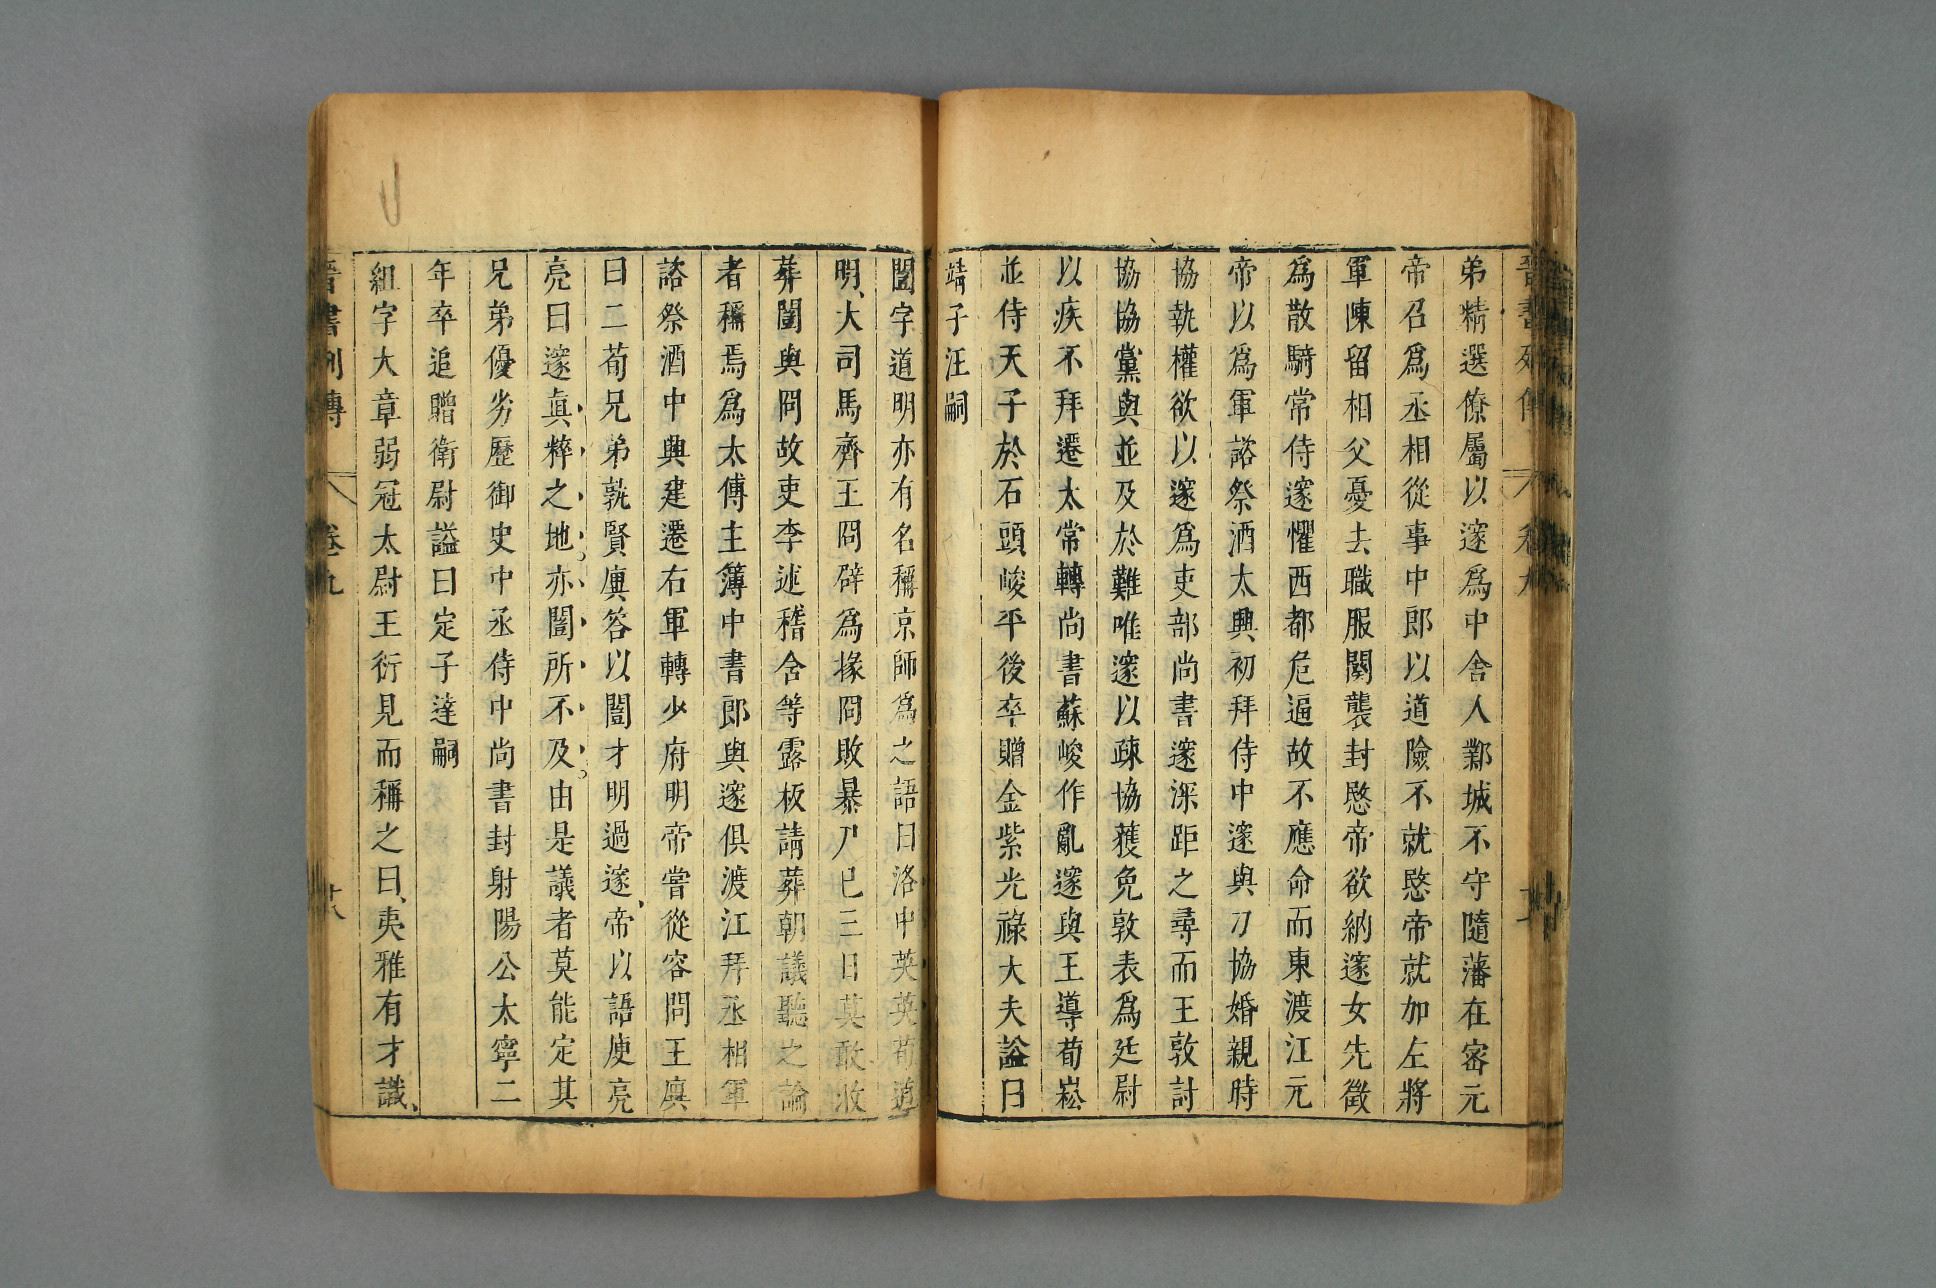 晉書列傳 卷九
弟精選僚屬以邃爲中舍人鄴城不守隨藩在密元
帝召爲丞相從事中郎以道險不就愍帝就加左將
軍陳留相父憂去職服闋襲封愍帝欲納邃女先徵
爲散騎常侍邃懼西都危逼故不應命而東渡江元
帝以爲軍諮祭酒太興初拜侍中邃與刀協婚親時
協執權欲以邃爲吏部尚書邃深距之尋而王敦討
協協黨與並及於難唯邃以疎協獲免敦表爲廷尉
以疾不拜遷太常轉尚書蘇峻作亂邃與王導荀崧
並侍天子於石頭峻平後卒贈金紫光祿大夫謚曰
靖子汪嗣
闓字道明亦有名稱京師爲之語曰洛中英英荀道
明、大司馬齊王冏辟爲掾冏敗暴尸已三日莫敢收
葬闓與冏故吏李述嵇含等露板請葬朝議聽之論
者稱焉爲太傅主簿中書郎與邃俱渡江拜丞相軍
諮祭酒中興建遷右軍轉少府明帝嘗從容問王廙
曰二荀兄弟孰賢廙答以闓才明過邃、帝以語庾亮
亮曰邃眞粹之地亦闓所不及由是議者莫能定其
兄弟優劣歷御史中丞侍中尚書封射陽公太寧二
年卒追贈衛尉謚曰定子達嗣
組字大章弱冠太尉王衍見而稱之曰、夷雅有才識、
晉書列傳 卷九 廿八